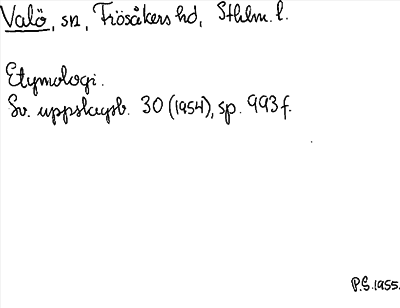 Valö, sn, Frösåkers hd, Sthlm. l.
Etymologi.
Sv. uppslagsb. 30 (1954), sp. 993 f.
P.S. 1955.